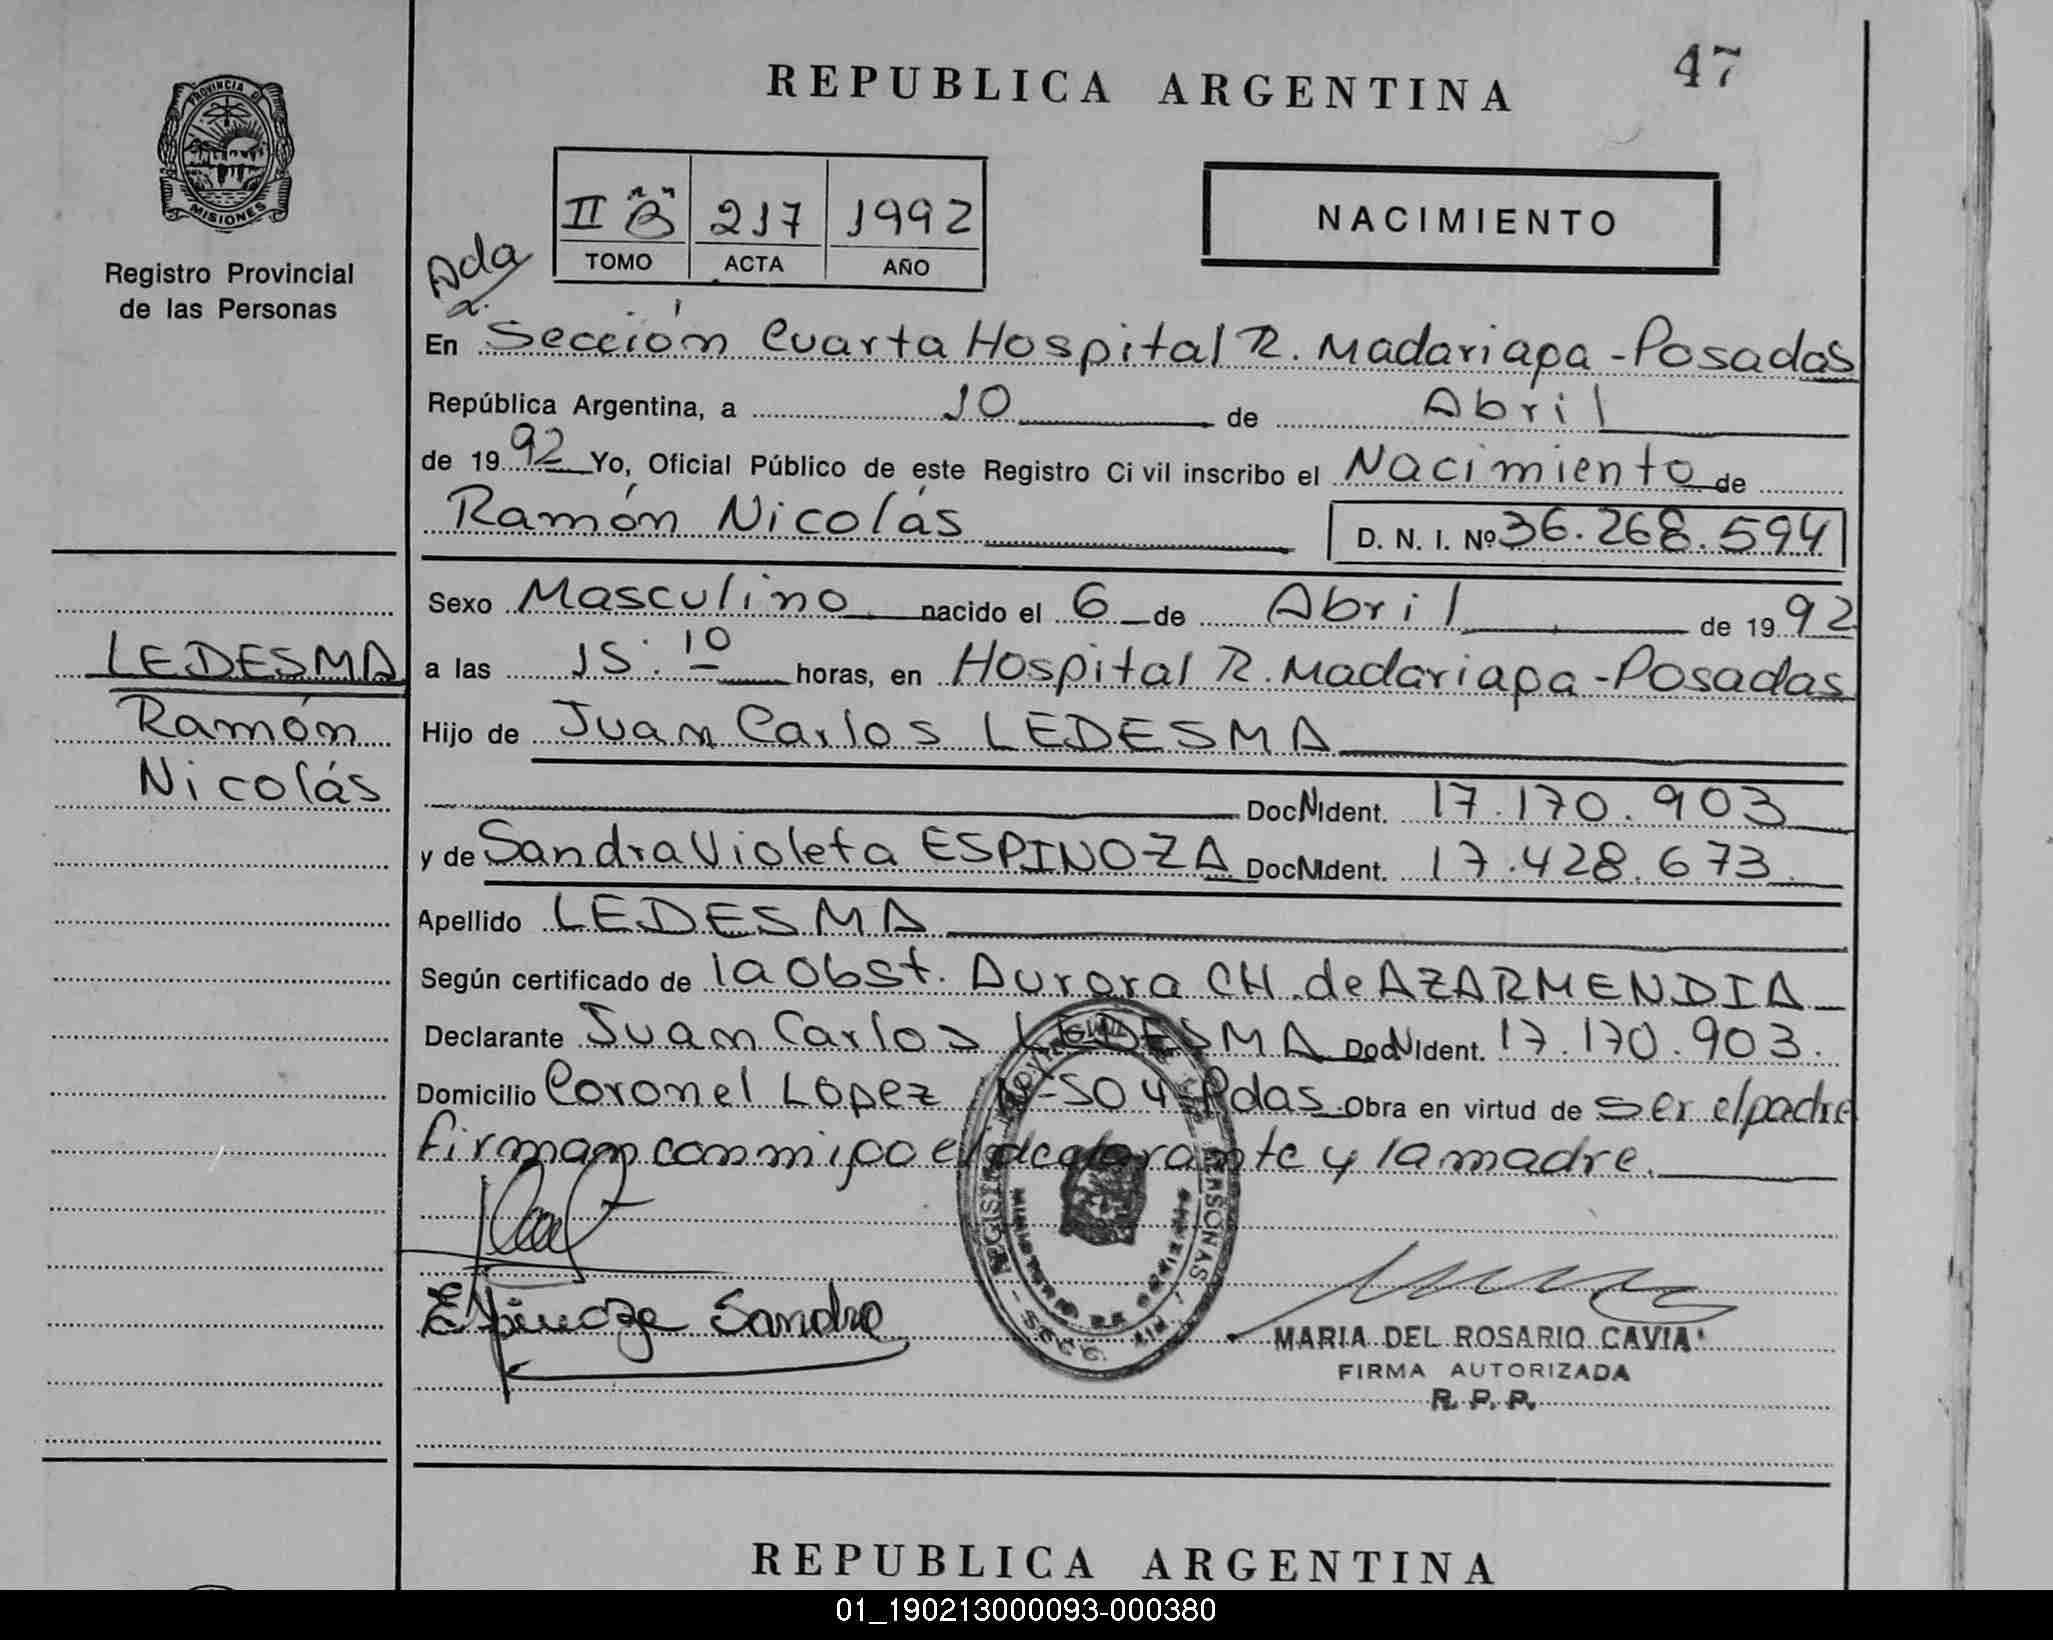 47
REPUBLICA ARGENTINA
PROVINCIA DE
MISIONES
Registro Provincial
de las Personas
II "B" 217 1992
TOMO ACTA AÑO
NACIMIENTO
Ada
En Sección Cuarta Hospital R. Madariaga - Posadas
República Argentina, a 10 de Abril
de 1992 Yo, Oficial Público de este Registro Civil inscribo el Nacimiento de
Ramón Nicolás D. N. I. Nº 36.268.594
Sexo Masculino nacido el 6 de Abril de 1992
LEDESMA
Ramón
Nicolás
a las 15:10 horas, en Hospital R. Madariaga - Posadas
Hijo de Juan Carlos LEDESMA
Doc N Ident. 17.170.903
y de Sandra Violeta ESPINOZA Doc N Ident. 17.428.673
Apellido LEDESMA
Según certificado de la Obst. Aurora CH. de AZARMENDIA
Declarante Juan Carlos LEDESMA Doc N Ident. 17.170.903.
Domicilio Coronel López Nº 504 Pdas. Obra en virtud de ser el padre
firman conmigo el declarante y la madre.
Espinoza Sandra
MARIA DEL ROSARIO CAVIA
FIRMA AUTORIZADA
R. P. P.
REPUBLICA ARGENTINA
01_190213000093-000380